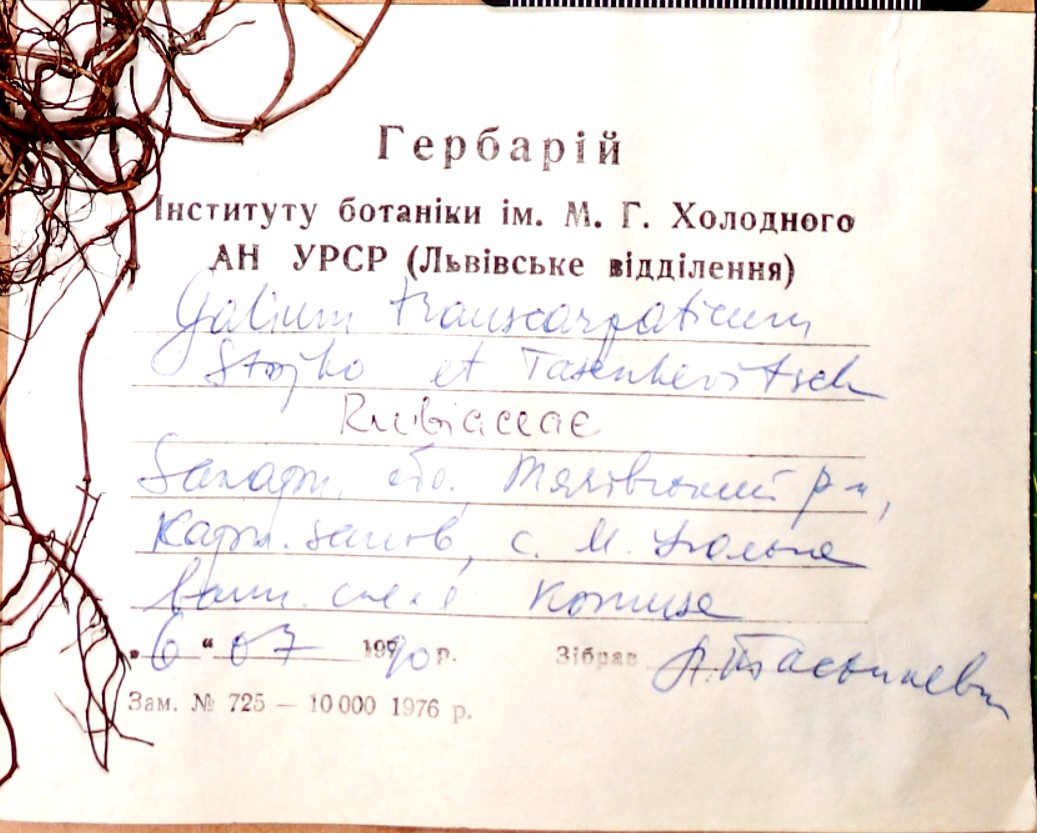 Гербарій
Інституту ботаніки ім. М. Г. Холодного
АН УРСР (Львівське відділення)
Galium transcarpaticum
Stojko et Tasenkevitsch
Rubiaceae
Закарп. обл. Тячівський р-н,
Карп. запов, с. М. Уголька
вапн. скелі
„6“ 07 1990 р. Зібрав Л. Тасєнкевич
Зам. № 725 — 10 000 1976 р.